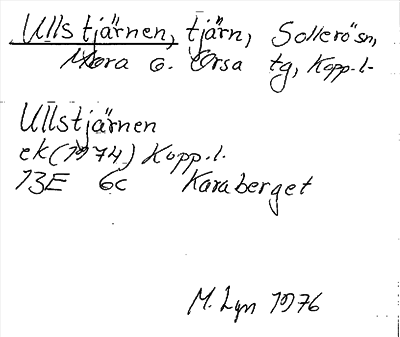 Ullstjärnen, tjärn, Sollerösn,
Mora o. Orsa tg, Kopp.l.
Ullstjärnen
ek(1974) Kopp.l.
13E 6c Karaberget
M. Lyn 1976